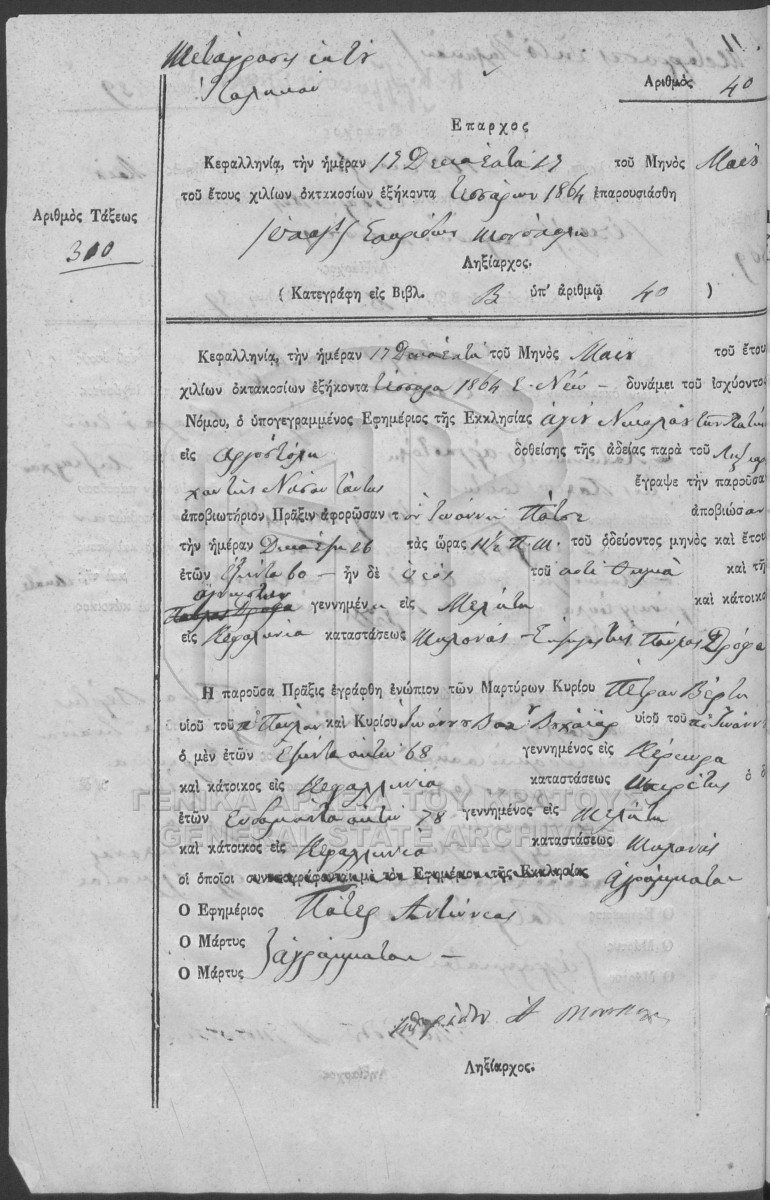 Μετάφρασις ἐκ τοῦ
Ἰταλικοῦ
Ἀριθμὸς 40
Ἔπαρχος
Κεφαλληνία, τὴν ἡμέραν 17 Δεκαεπτὰ 17 τοῦ Μηνὸς Μαΐου
τοῦ ἔτους χιλίων ὀκτακοσίων ἑξήκοντα τεσσάρων 1864 ἐπαρουσιάσθη
Σπυρίδων
Ληξίαρχος.
( Κατεγράφη εἰς Βιβλ. Β ὑπ' ἀριθμῷ 40 )
Ἀριθμὸς Τάξεως
300
Κεφαλληνία, τὴν ἡμέραν 17 Δεκαεπτὰ τοῦ Μηνὸς Μαΐου τοῦ ἔτου
χιλίων ὀκτακοσίων ἑξήκοντα τέσσαρα 1864 Ε. Νέον – δυνάμει τοῦ ἰσχύοντο
Νόμου, ὁ ὑπογεγραμμένος Ἐφημέριος τῆς Ἐκκλησίας ἁγίου Νικολάου τῶν Λατίνων
εἰς Ἀργοστόλι δοθείσης τῆς ἀδείας παρὰ τοῦ Ληξιάρ
χου τῆς Νήσου ταύτης ἔγραψε τὴν παροῦσα
ἀποβιωτήριον Πρᾶξιν ἀφορῶσαν τὸν Ἰωάννην Πάτσε ἀποβιώσαν
τὴν ἡμέραν τὰς ὥρας 11½ Π.Μ. τοῦ ὁδεύοντος μηνὸς καὶ ἔτου
ἐτῶν ἑξῆντα 60 – ἦν δὲ υἱὸς τοῦ ποτὲ Θωμᾶ καὶ τῆ
ἀγνώστου
γεννημένον εἰς Μελάτα καὶ κάτοικο
εἰς Κεφαλληνία καταστάσεως Μυλονάς – Σύζυγος τῆς Παύλας Δρόφα
Ἡ παροῦσα Πρᾶξις ἐγράφθη ἐνώπιον τῶν Μαρτύρων Κυρίου Πέτρου Βέρτη
υἱοῦ τοῦ π. Παύλου καὶ Κυρίου Ἰωάννου υἱοῦ τοῦ π. Ἰωάνν
ὁ μὲν ἐτῶν ἑξῆντα ὀκτὼ 68 γεννημένος εἰς Κέρκυρα
καὶ κάτοικος εἰς Κεφαλληνία καταστάσεως ὁ δ
ἐτῶν ἑβδομῆντα ὀκτὼ 78 γεννημένος εἰς Μελάτα
καὶ κάτοικος εἰς Κεφαλληνία καταστάσεως Μυλονάς
οἱ ὁποῖοι συνυπογράφονται μὲ τὸν Ἐφημέριον τῆς Ἐκκλησίας ἀγράμματοι
Ὁ Ἐφημέριος Πάτερ Ἀντώνιος
Ὁ Μάρτυς
Ὁ Μάρτυς } ἀγράμματοι –
Ληξίαρχος.
ΓΕΝΙΚΑ ΑΡΧΕΙΑ ΤΟΥ ΚΡΑΤΟΥΣ
GENERAL STATE ARCHIVES